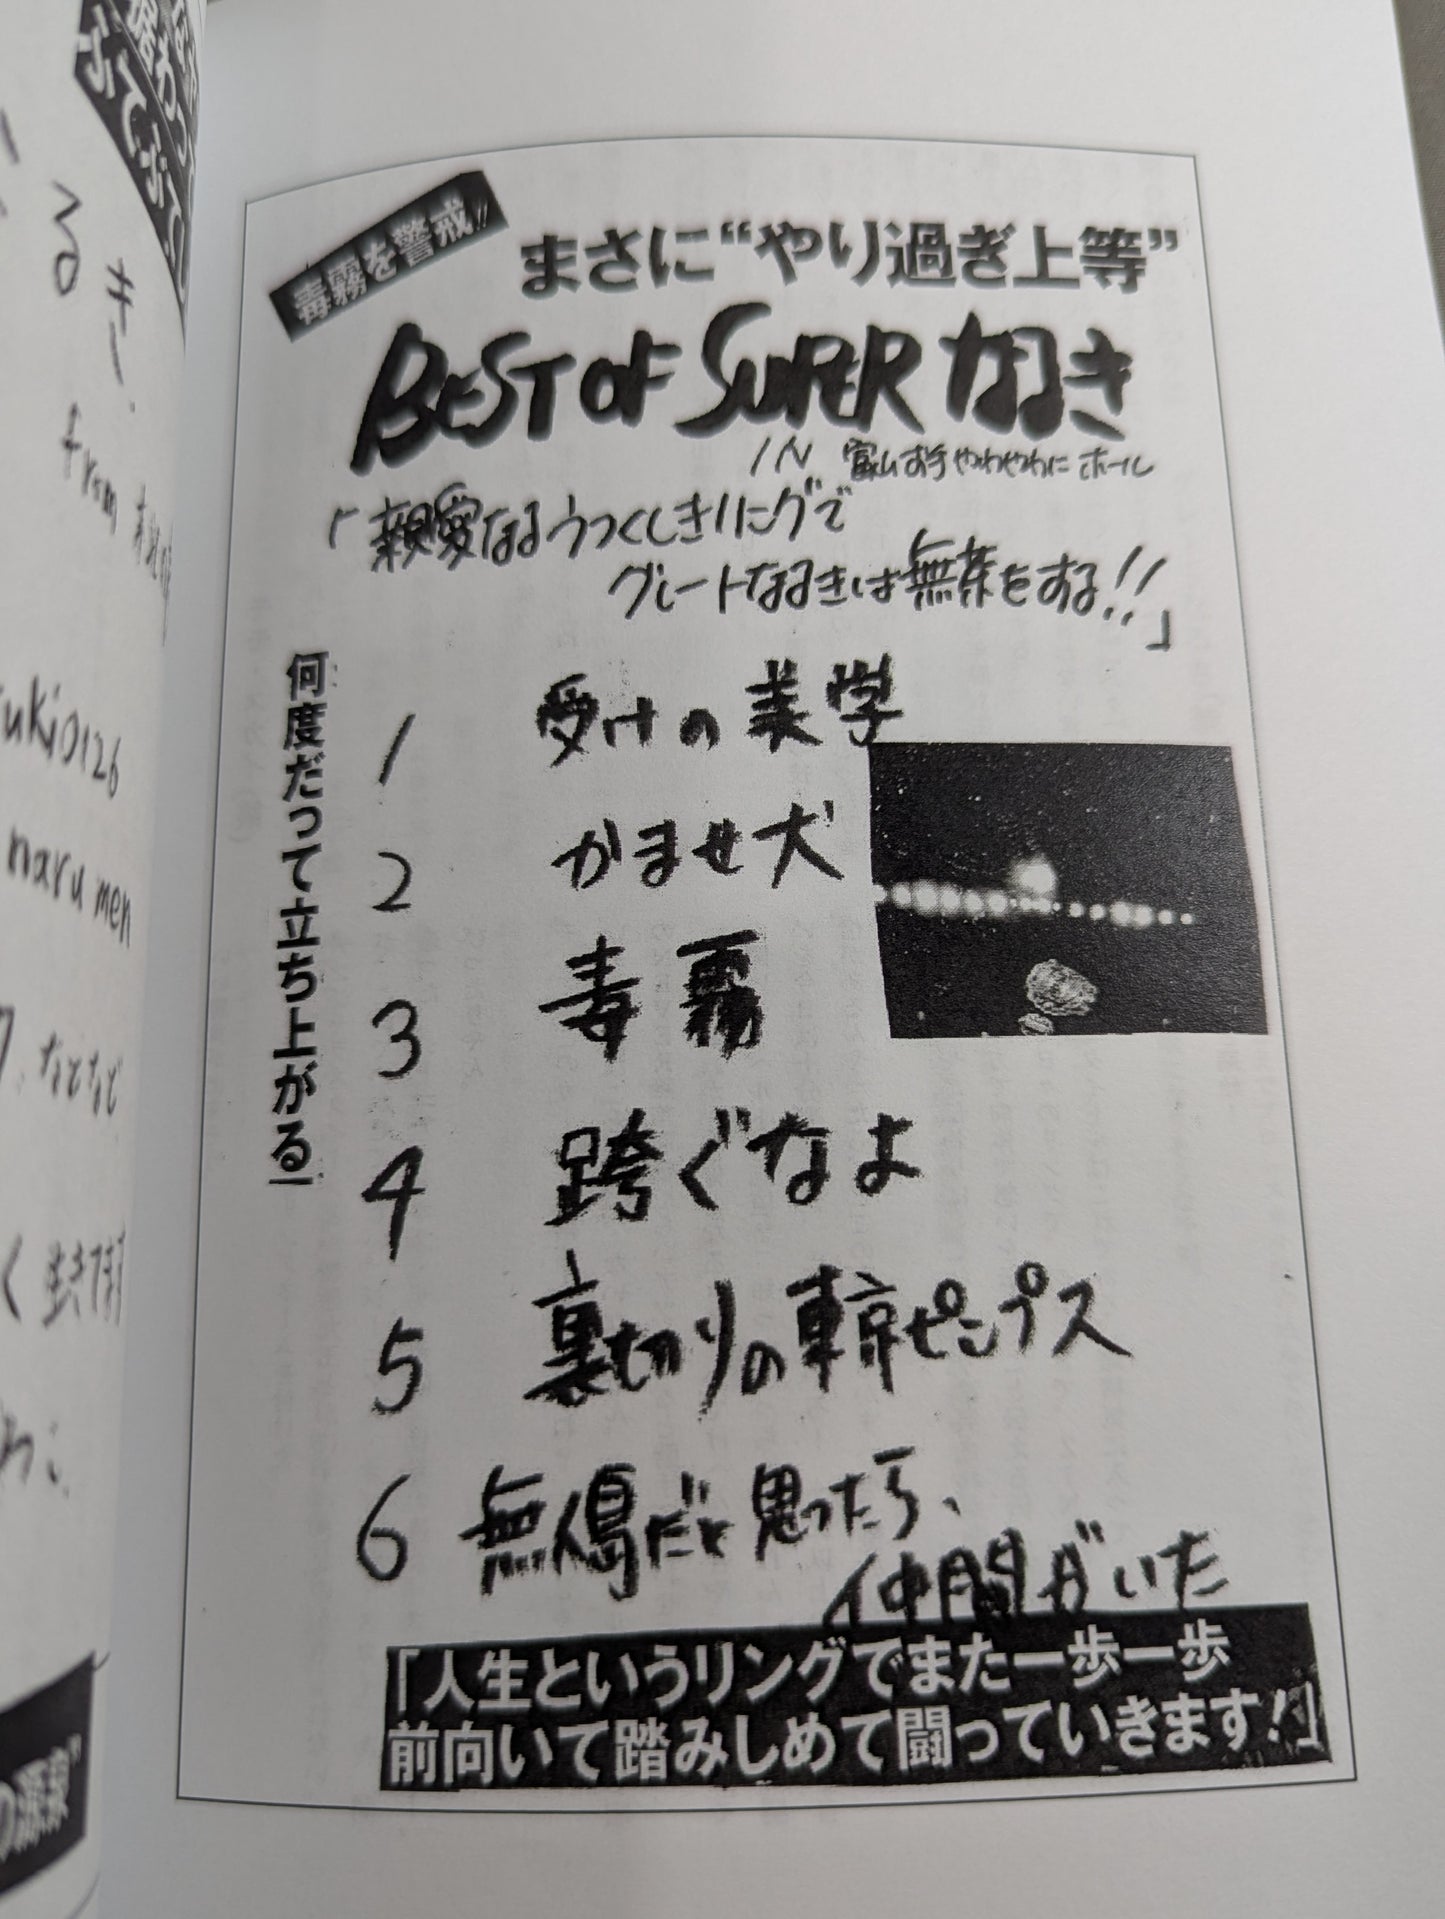 毒霧を警戒!!
まさに“やり過ぎ上等”
BEST OF SUPER なるき
IN 富山お手やわやわにホール
「親愛なるうつくしきリングで
グレートなるきは無茶をする!!」
何度だって立ち上がる!
1 受けの美学
2 かませ犬
3 毒霧
4 跨ぐなよ
5 裏切りの東京ピンプス
6 無傷だと思ったら、
仲間がいた
「人生というリングでまた一歩一歩
前向いて踏みしめて闘っていきます!」
るき.
from
uki0126
naru men
などなど